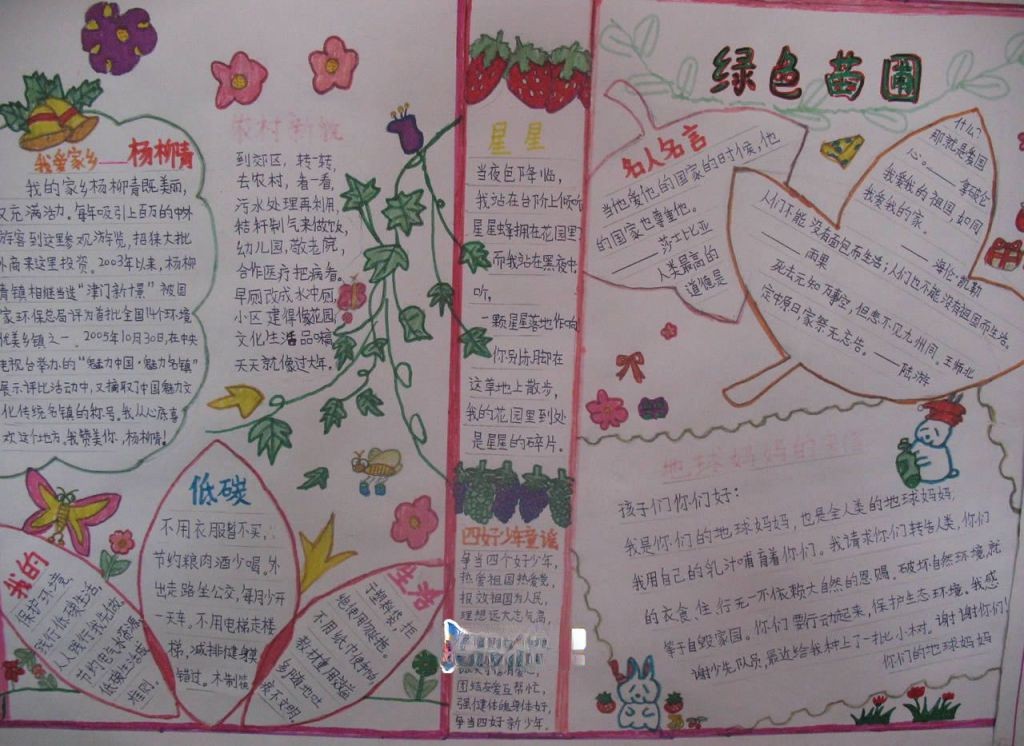 绿色苗圃
我爱家乡——杨柳青
我的家乡杨柳青既美丽,
又充满活力。每年吸引上百万的中外
游客到这里参观游览,招徕大批
外商来这里投资。2003年以来,杨柳
青镇相继当选“津门新十景”被国
家环保总局评为首批全国14个环境
优美乡镇之一。2005年10月30日,在中央
电视台举办的“魅力中国·魅力名镇”
展示评比活动中,又摘取了中国魅力文
化传统名镇的称号。我从心底喜
欢这个地方,我赞美你,杨柳青!
农村新貌
到郊区,转一转,
去农村,看一看,
污水处理再利用,
秸秆制气来做饭,
幼儿园,敬老院,
合作医疗把病看。
旱厕改成水冲厕,
小区建得像花园,
文化生活品味高,
天天就像过大年。
星星
当夜色下降临,
我站在台阶上倾听
星星蜂拥在花园里
而我站在黑夜中
听,
一颗星星落地作响
你别赤脚在
这草地上散步,
我的花园里到处
是星星的碎片。
四好少年童谣
争当四个好少年,
热爱祖国热爱党,
报效祖国为人民,
理想远大志气高,
团结友爱互帮忙,
强健体魄身体好,
争当四好新少年。
名人名言
当他爱他的国家的时候,他
的国家也尊重他。
——莎士比亚
人类最高的
道德是
什么?
那就是爱国
心。——拿破仑
我爱我的祖国,如同
我爱我的家。
——海伦·凯勒
人们不能没有面包而生活;人们也不能没有祖国而生活。
——雨果
死去元知万事空,但悲不见九州同。王师北
定中原日,家祭无忘告。——陆游
地球妈妈的来信
孩子们你们好:
我是你们的地球妈妈,也是全人类的地球妈妈,
我用自己的乳汁哺育着你们。我请求你们转告人类,你们
的衣食、住、行无一不依赖大自然的恩赐。破坏自然环境,就
等于自毁家园。你们要行动起来,保护生态环境。我感
谢少先队员,最近给我种上了一批小树。谢谢你们!
你们的地球妈妈
我的
低碳
生活
保护环境
践行低碳生活
人人践行我先做
节约电气
低碳生活
不用衣服暂不买,
节约粮肉酒少喝。外
出走路坐公交,每月少开
一天车。不用电梯走楼
梯,减排健身
错过。木制筷
子塑料袋,拒
绝使用
不用纸巾使
教材重用
多随地吐
痰不文明。